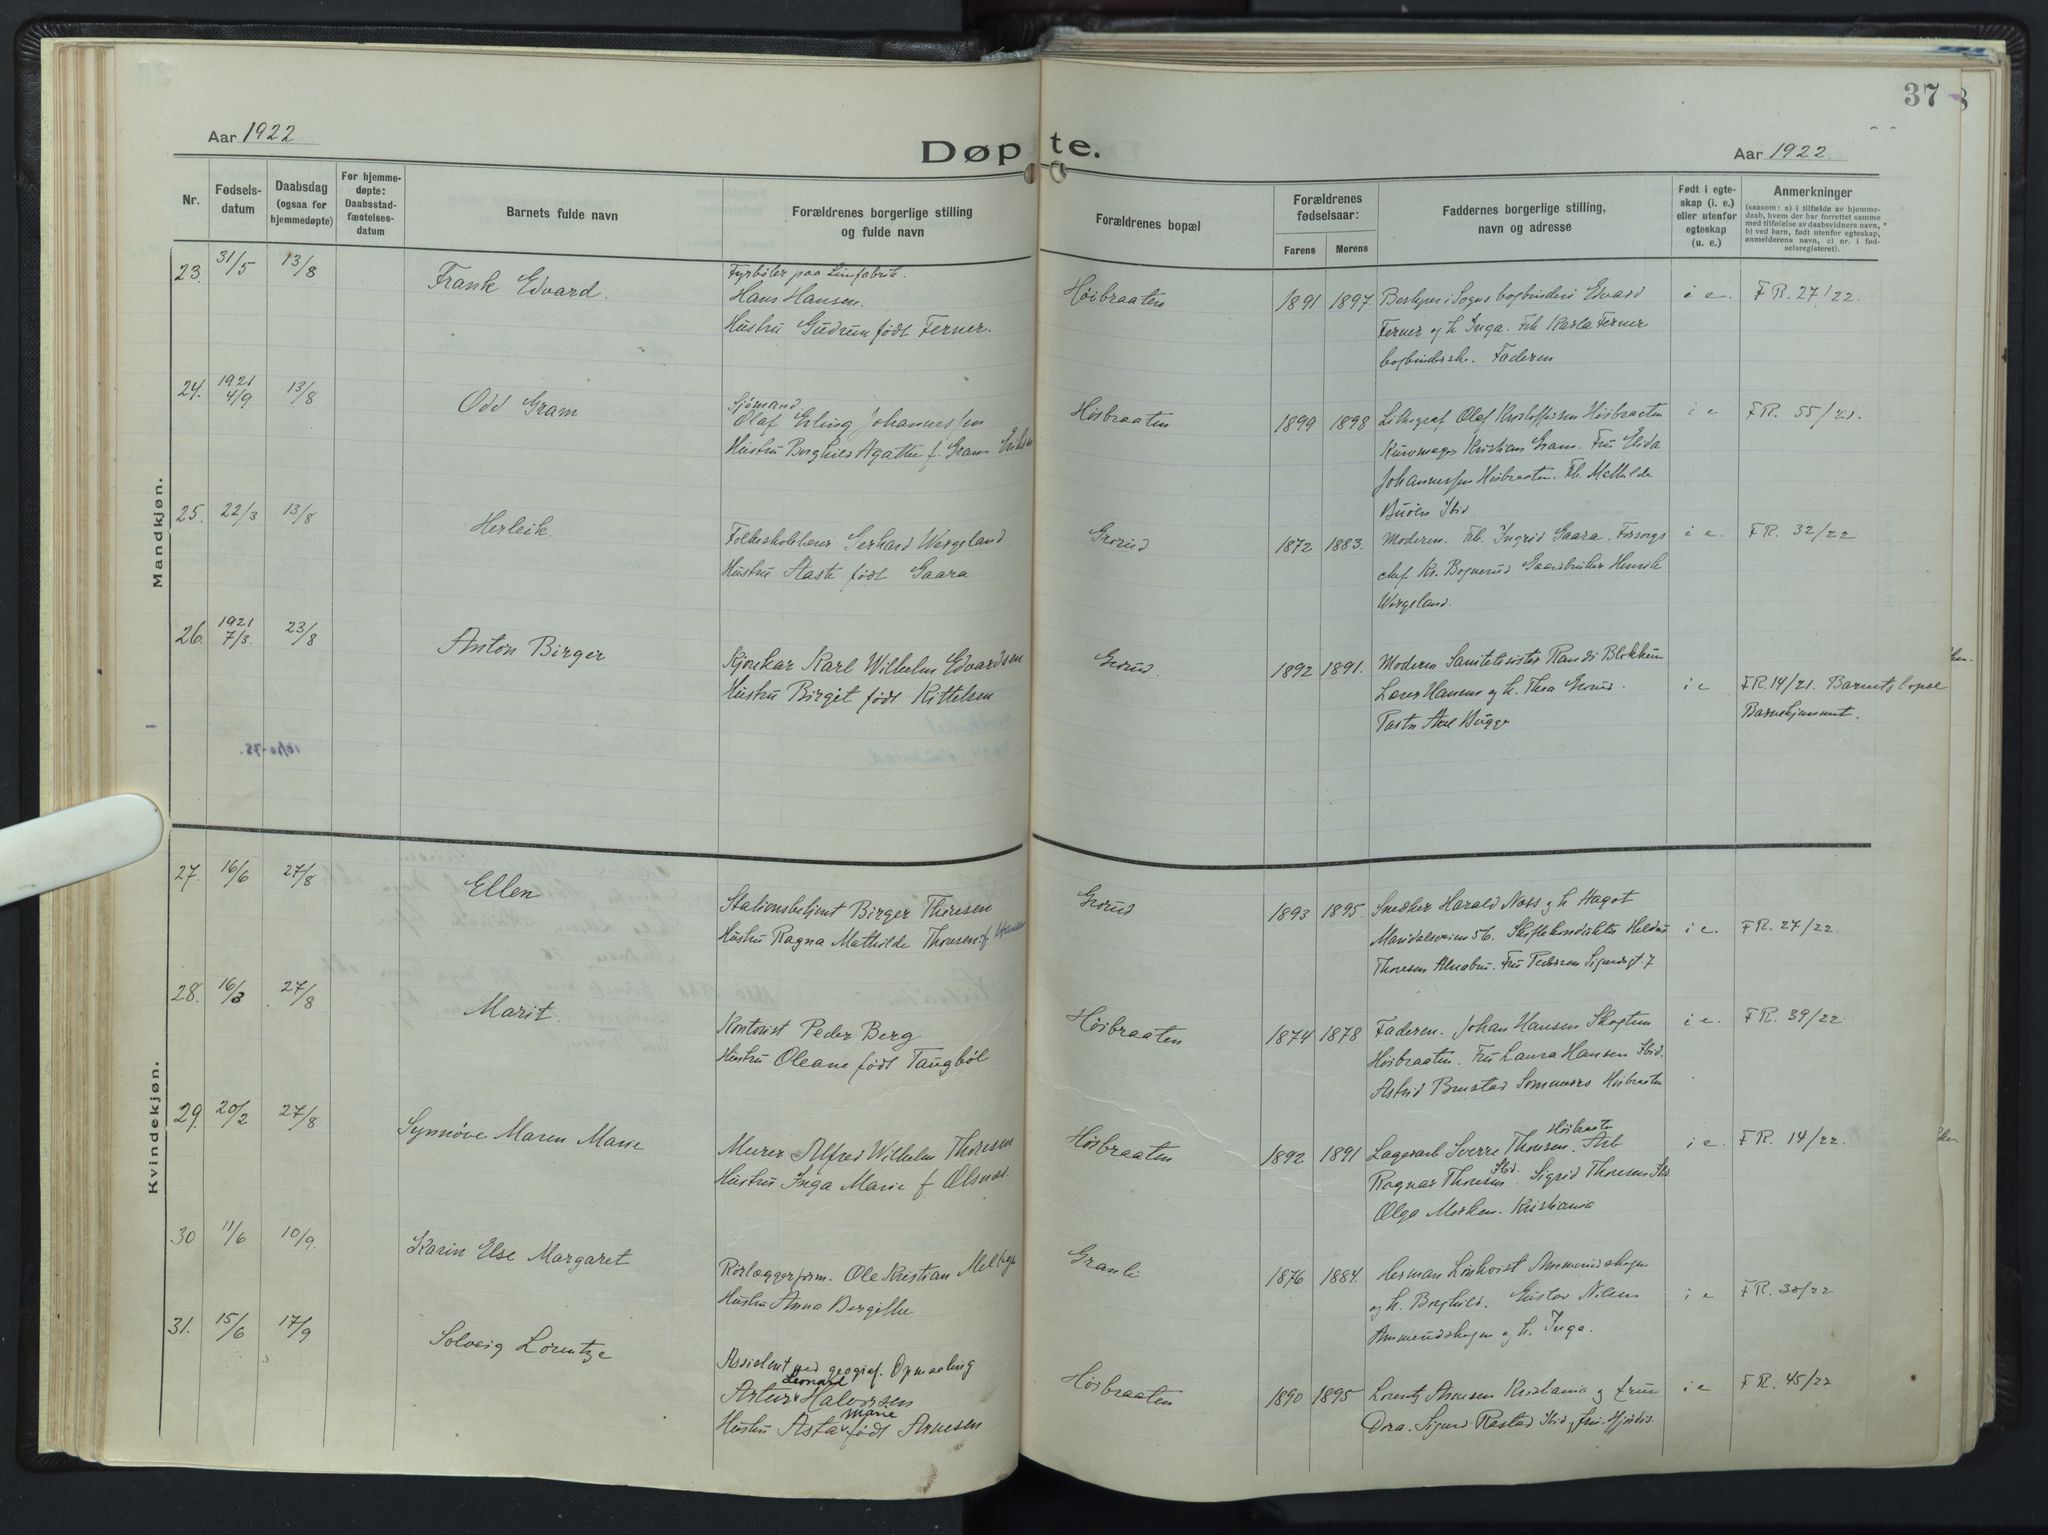 37
Aar 1922
Døpte.
Aar 1922.
Nr.
Fødsels-
datum
Daabsdag
(ogsaa for
hjemmedøpte)
For hjemme-
døpte:
Daabsstad-
fæstelses-
datum
Barnets fulde navn
Forældrenes borgerlige stilling
og fulde navn
Forældrenes bopæl
Forældrenes
fødselsaar:
Farens
Morens
Faddernes borgerlige stilling,
navn og adresse
Født i egte-
skap (i. e.)
eller utenfor
egteskap
(u. e.)
Anmerkninger
(saasom: a) i tilfælde av hjemme-
daab, hvem der har forrettet samme
med tilføielse av daabsvidners navn,
b) ved barn, født utenfor egteskap,
anmelderens navn, c) nr. i fød-
selsregisteret).
Mandkjøn.
23. 31/5 13/8
Frank Edvard.
Fyrbøter paa Limfabrik.
Hans Hansen.
Hustru Gudrun født Ferner.
Høibraaten
1891 1897
i Sogns bogbinderi Edvard
Ferner og h. Inga. Frk Karla Ferner
Faderen
i e. F.R. 27/22.
24. 1921 4/9 13/8
Odd Gram
Sjømand
Olaf Erling Johannessen
Hustru Borghild Agathe f. Gram
Høibraaten
1899 1898
Lithograf Olaf Kristoffersen Høibraaten
Kristian Gram. Fru Elida
Johannessen Høibraaten. Frk. Mathilde
Ibid
i e F.R. 55/21.
25. 22/3 13/8
Herleik
Gerhard Wergeland
Hustru født Gaara.
Grorud
1872 1883.
Moderen. Frk. Ingrid Gaara. Forsorgs
chef Kr. Bognerud Gaardbruker Henrik
Wergeland.
i e. F.R. 32/22
26. 1921 7/3. 23/8
Anton Birger
Karl Wilhelm Edvardsen
Hustru Birgit født Kittelsen
Grorud.
1892 1891.
Moderen Sanitetssøster Randi
Hansen og h. Thea Grorud.
Bugge
i e F.R. 14/21. Barnet
Barnehjemmet.
Kvindekjøn.
27. 16/6 27/8
Ellen
Stationsbetjent Birger Thoresen
Hustru Ragna Mathilde Thoresen f.
Grorud
1893 1895.
Snedker Harald Næss og h. Hagot
Maridalsveien 56.
Thoresen Alnabru. Fru Pettersen Sigurdsgt. 7
i e. F.R. 27/22.
28. 16/3 27/8
Marit.
Kontorist Peder Berg
Hustru Oleane født Taugbøl
Høibraaten
1874 1878
Faderen. Johan Hansen
Høibraaten. Fru Laura Hansen Ibid.
Astrid Brustad Høibraaten
i e. F.R. 39/22
29. 20/2 27/8
Synnøve Maren Marie
Murer Alfred Wilhelm Thoresen
Hustru Inga Marie f Olsnæs.
Høibraaten
1892 1891
Høibraaten
Lagerarb Sverre Thoresen. Arb
Ragnar Thoresen Ibid. Sigrid Thoresen Ibid
Olga Kristiania
i e. F.R. 14/22.
30 11/6 10/9.
Karin Else Margaret
Rørlæggerform. Ole Kristian
Hustru Anna Bergithe
Granli
1876 1884.
Herman Ammerudskogen
og h. Borghild. Gustav Nilsen
Ammerudskogen og h. Inga.
i e F.R. 30/22
31. 15/6 17/9
Solveig Lorentze
Assistent ved geograf. Opmaaling
Leonard
Artur Halvorsen
Marie
Hustru Asta født Arnesen
Høibraaten
1890 1895
Lorentz Arnesen Kristiania og frue
Dora. Sigurd Rastad Ibid og fru Hjørdis
i e F.R. 45/22